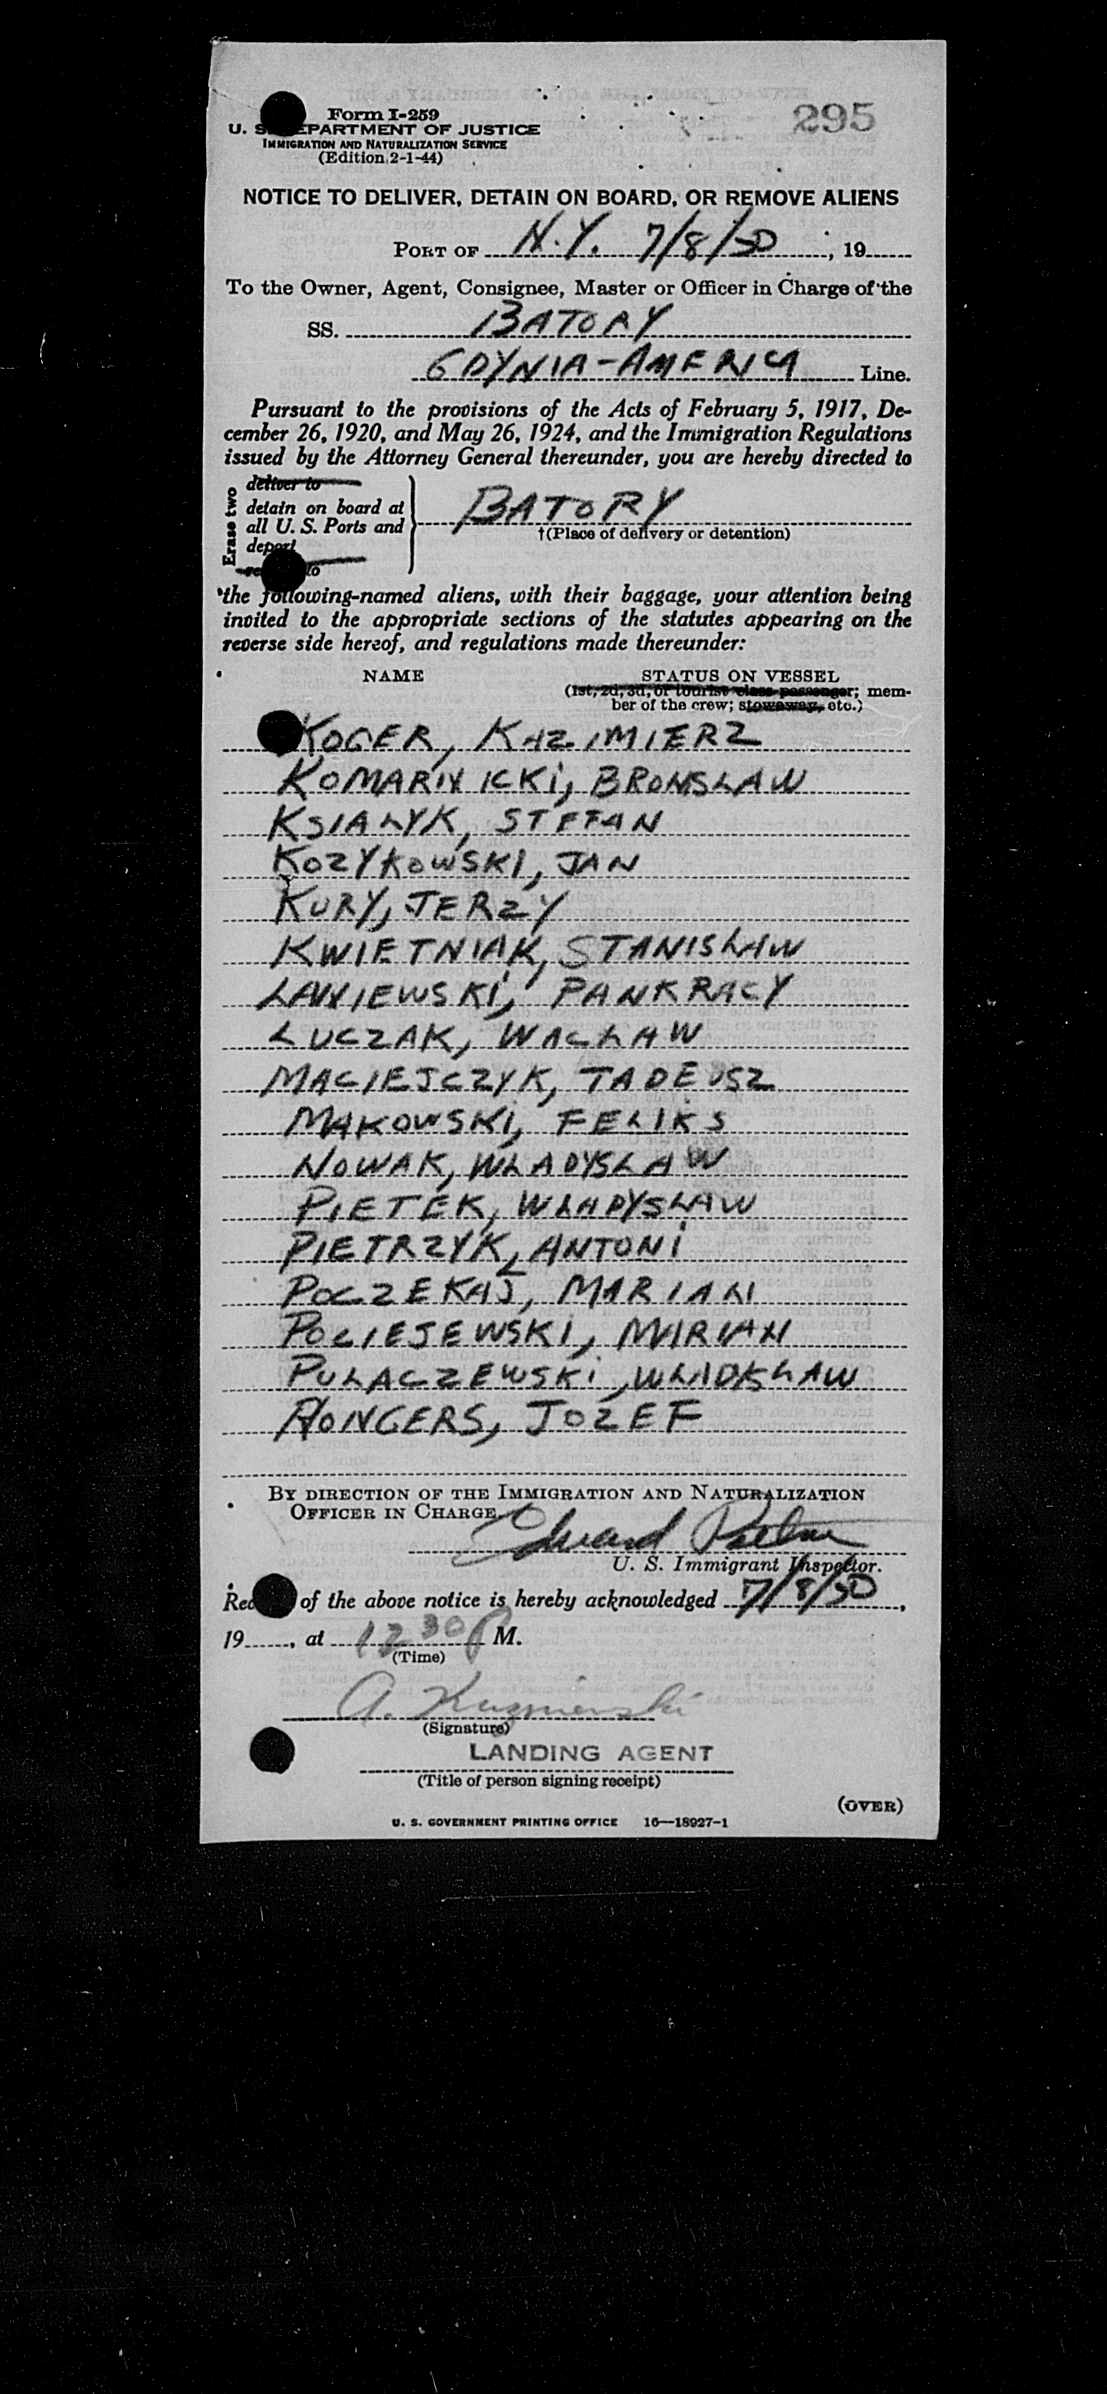 295
Form I-259
U. S. DEPARTMENT OF JUSTICE
IMMIGRATION AND NATURALIZATION SERVICE
(Edition 2-1-44)
NOTICE TO DELIVER, DETAIN ON BOARD, OR REMOVE ALIENS
PORT OF N.Y. 7/8/50, 19
To the Owner, Agent, Consignee, Master or Officer in Charge of the
SS. BATORY
GDYNIA-AMERICA Line.
Pursuant to the provisions of the Acts of February 5, 1917, De-
cember 26, 1920, and May 26, 1924, and the Immigration Regulations
issued by the Attorney General thereunder, you are hereby directed to
Erase two
deliver to
detain on board at
all U. S. Ports and
deport
to
BATORY
†(Place of delivery or detention)
the following-named aliens, with their baggage, your attention being
invited to the appropriate sections of the statutes appearing on the
reverse side hereof, and regulations made thereunder:
NAME STATUS ON VESSEL
(1st, 2d, 3d, or tourist class passenger; mem-
ber of the crew; stowaway, etc.)
KOGER, KAZIMIERZ
KOMARNICKI, BRONISŁAW
KSIAŁYK, STEFAN
KOZYKOWSKI, JAN
KURY, JERZY
KWIETNIAK, STANISŁAW
PANKRACY
ŁUCZAK, WACŁAW
MACIEJCZYK, TADEUSZ
MAKOWSKI, FELIKS
NOWAK, WŁADYSŁAW
PIETEK, WŁADYSŁAW
PIETRZYK, ANTONI
POCZEKAJ, MARIAN
POCIEJEWSKI, MARIAN
PUŁACZEWSKI, WŁADYSŁAW
RONGERS, JOZEF
BY DIRECTION OF THE IMMIGRATION AND NATURALIZATION
OFFICER IN CHARGE.
Edward
U. S. Immigrant Inspector.
of the above notice is hereby acknowledged 7/8/50,
19, at 12 30 P M.
(Time)
A. Kuzmierski
(Signature)
LANDING AGENT
(Title of person signing receipt)
(OVER)
U. S. GOVERNMENT PRINTING OFFICE 16—18927-1